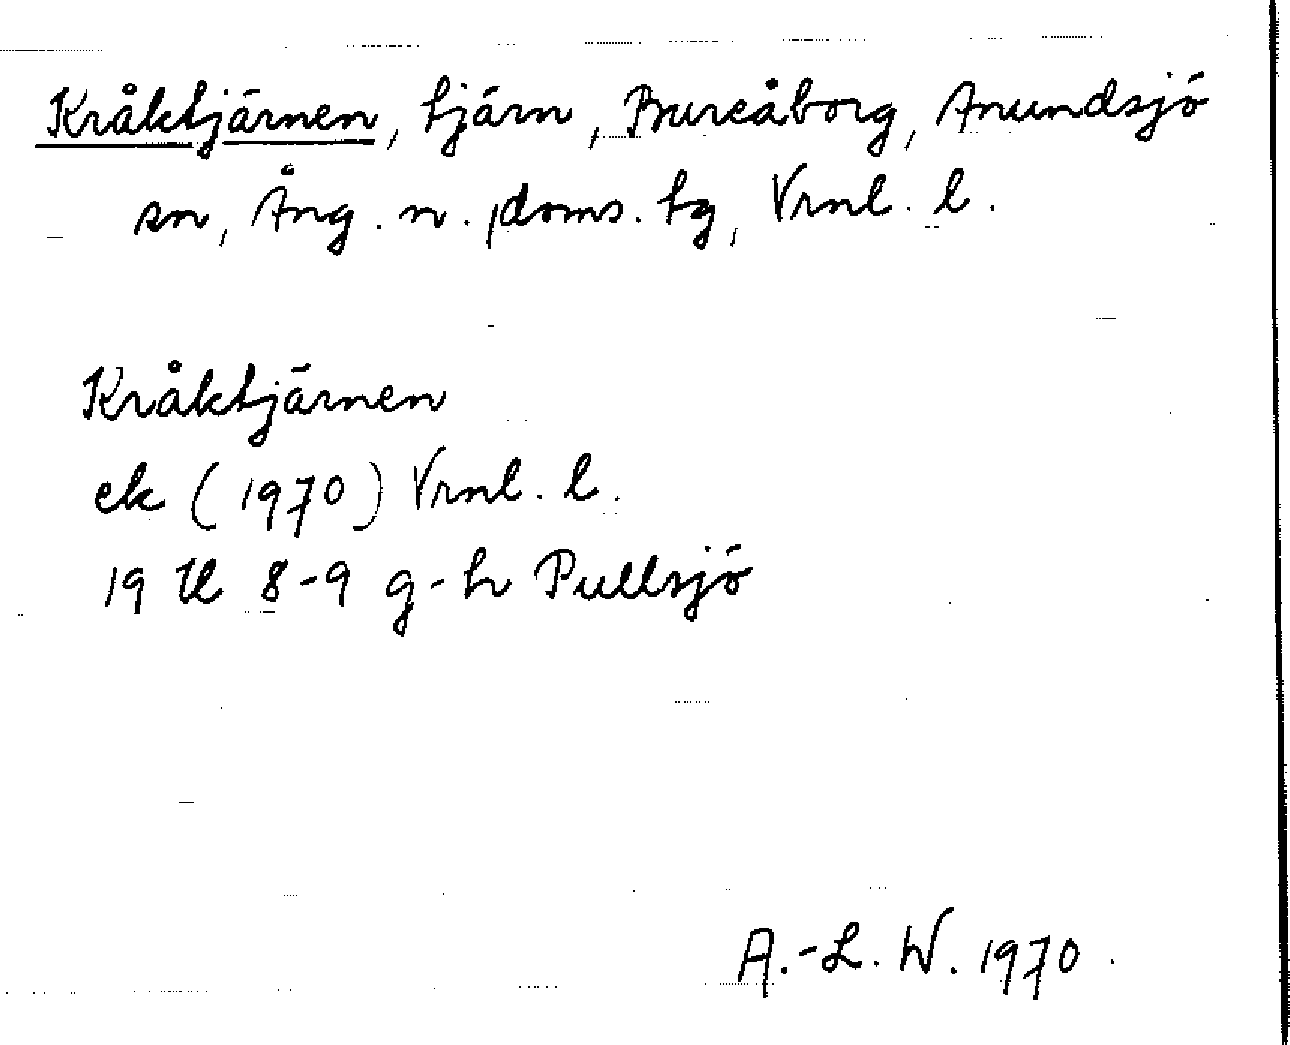 Kråktjärnen, tjärn, Bureåborg, Anundsjö
sn, Ång. n. doms. tg, Vrml. l.
Kråktjärnen
ek (1970) Vrml. l.
19 H 8-9 g-h Pullsjö
A.-L. W. 1970.